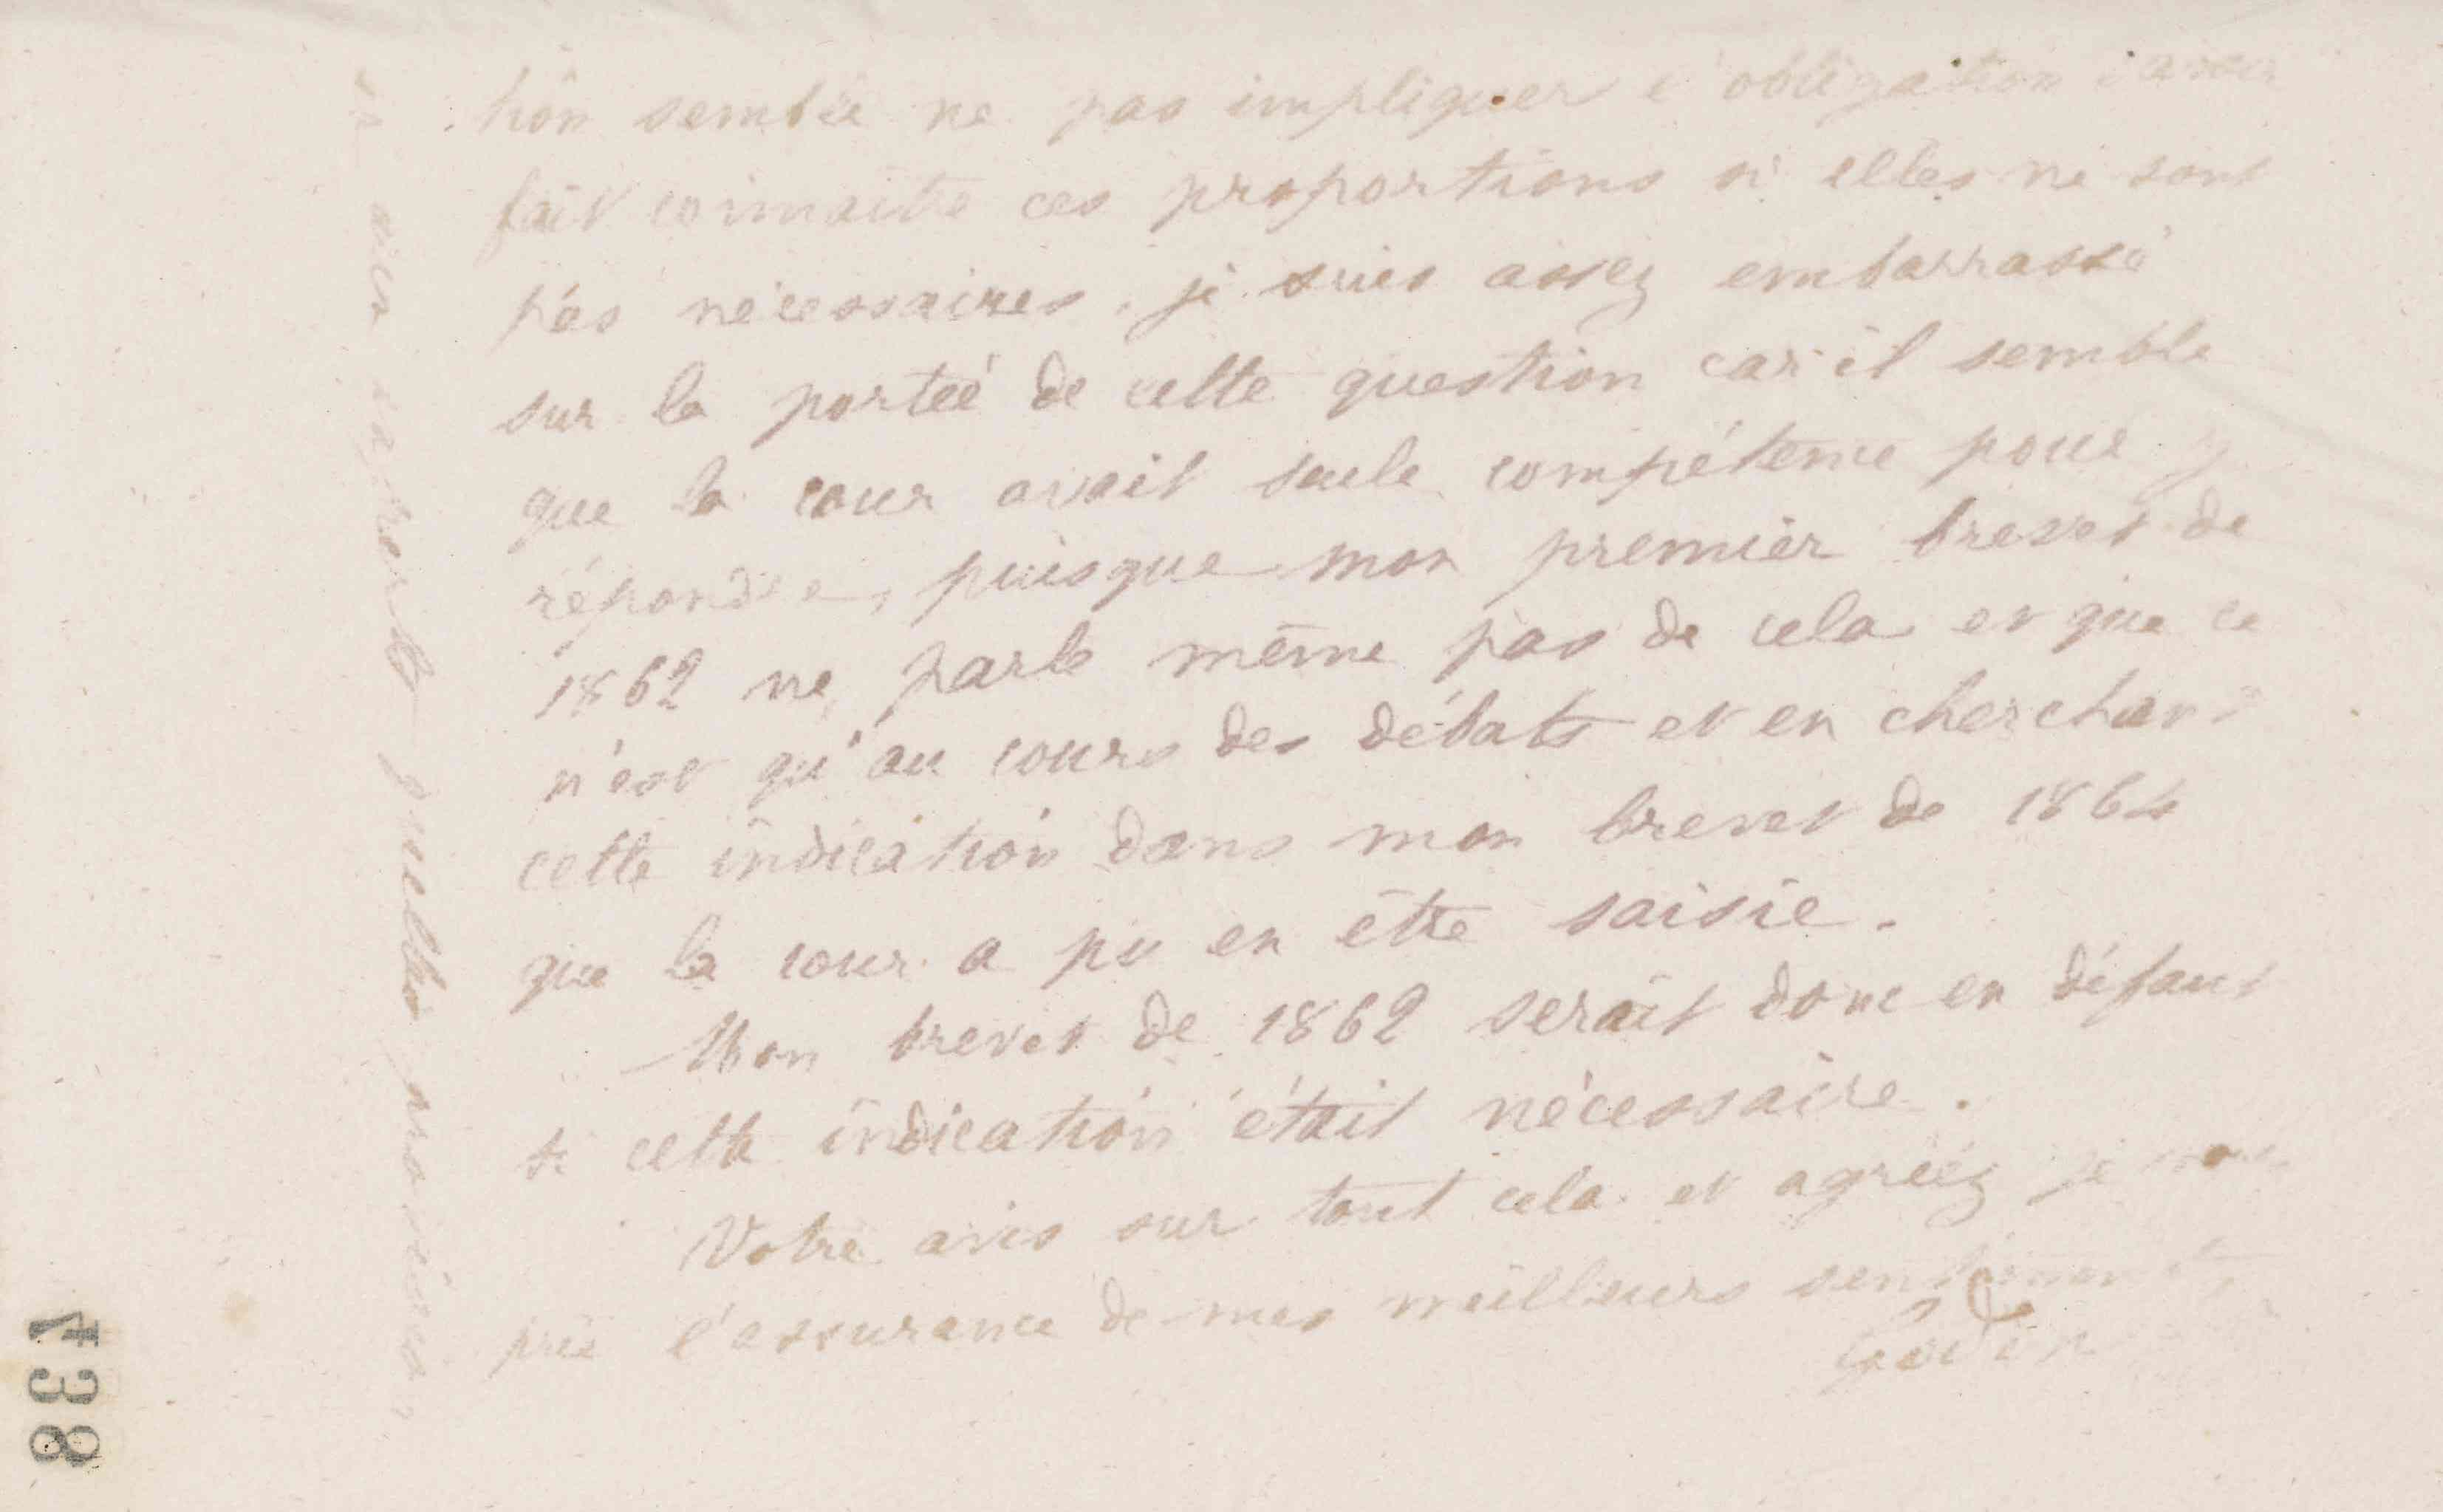 tion semble ne pas impliquer l'obligation d'avoir
fait connaitre ces proportions si elles ne sont
pas nécessaires, je suis assez embarrassé
sur la portée de cette question car il semble
que la cour avait seule compétence pour y
répondre, puisque mon premier brevet de
1862 ne parle même pas de cela et que ce
n'est qu'au cours des débats et en cherchant
cette indication dans mon brevet de 1864
que la cour a pu en être saisie.
Mon brevet de 1862 serait donc en défaut
si cette indication était nécessaire.
Votre avis sur tout cela et agréez je vous
prie l'assurance de mes meilleurs sentiments
Godin
738